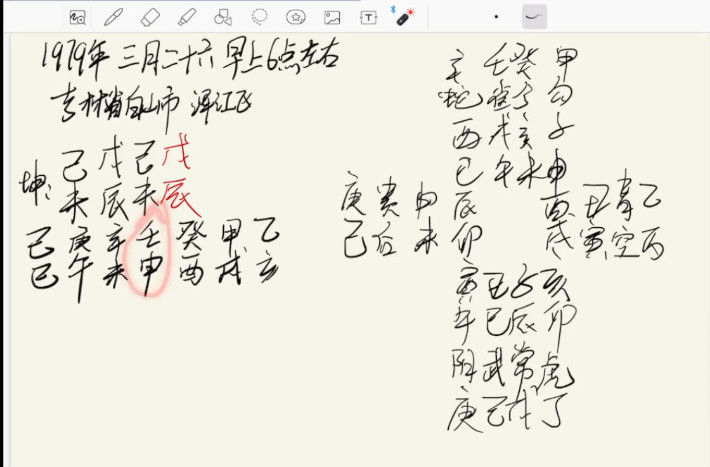 1979年 三月二十六 早上6点左右
吉林省白山市 浑江区
坤: 己 戊 己 戊
未 辰 未 辰
己 庚 辛 壬 癸 甲 乙
巳 午 未 申 酉 戌 亥
辛 壬 癸 甲
蛇 雀 勾
酉 戌 亥 子
巳 午 未 申
庚 贵 申 辰 酉 丑 青 乙
己 后 未 卯 戌 寅 空 丙
寅 丑 子 亥
午 巳 辰 卯
阴 武 常 虎
庚 己 戊 丁